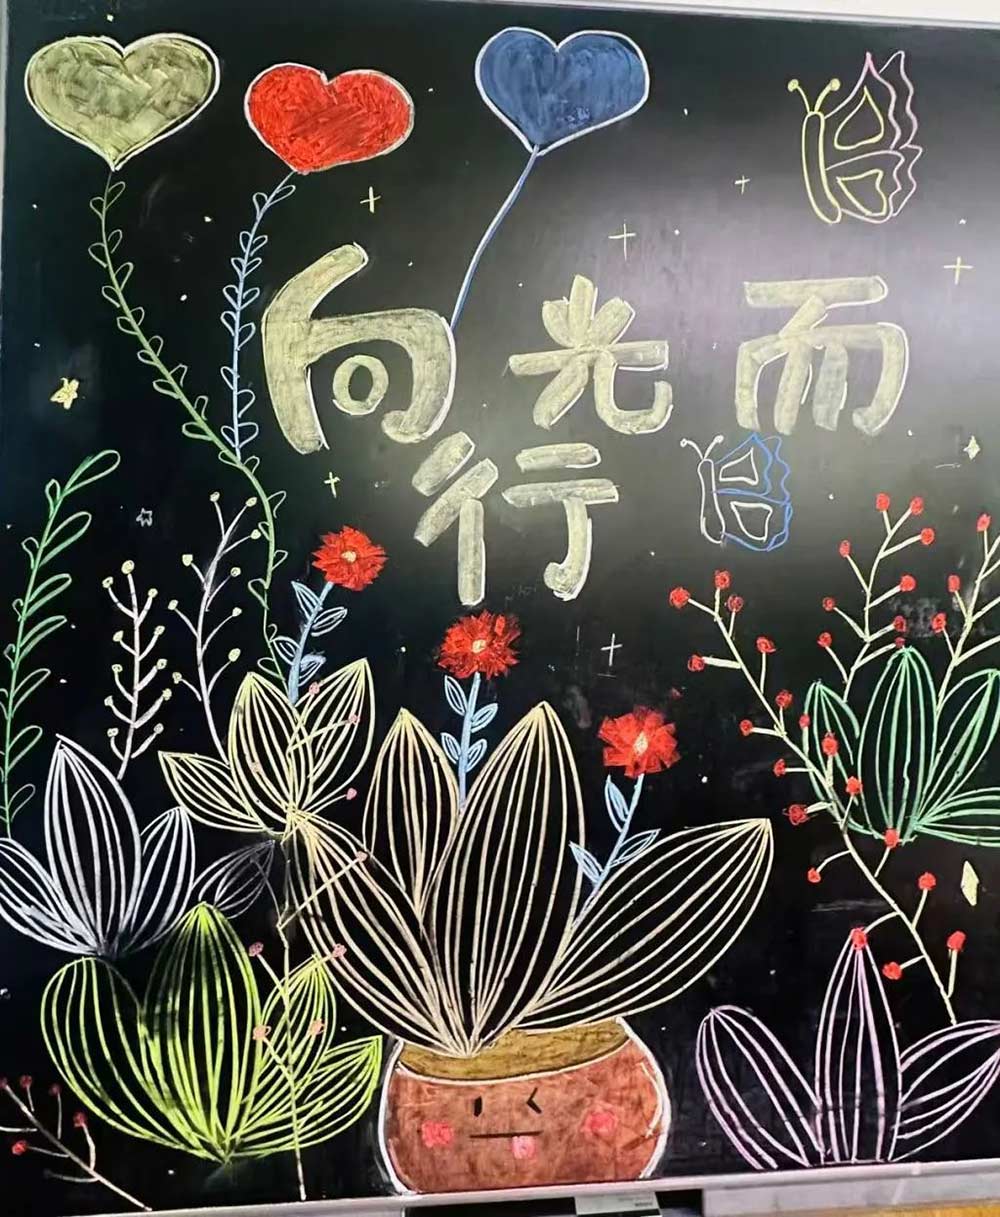 向光而
行